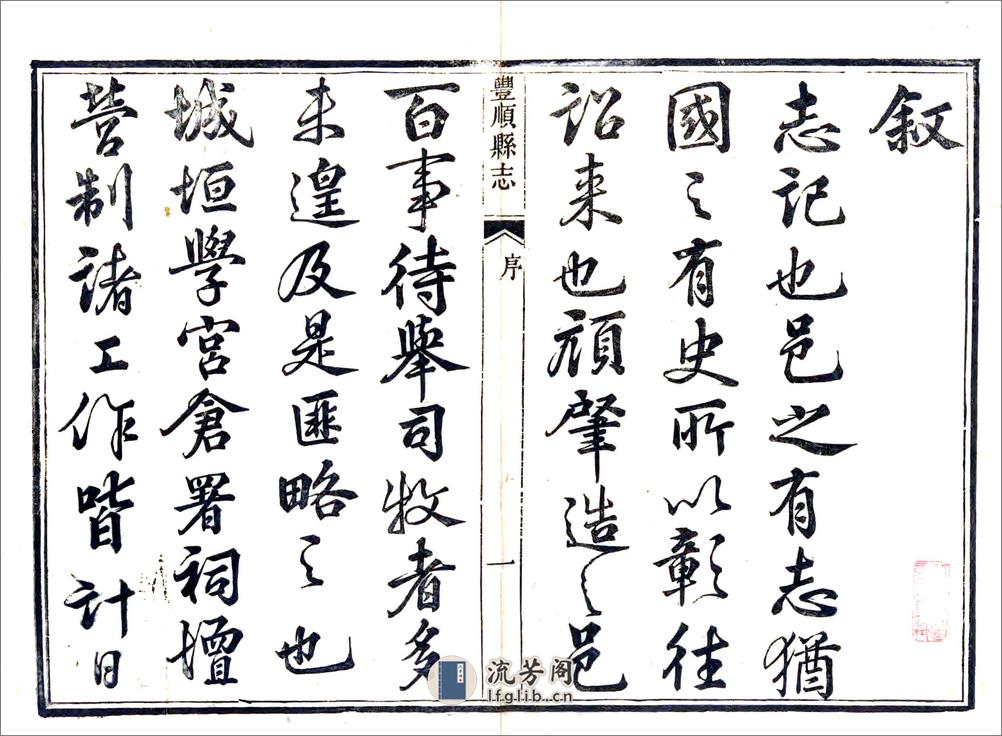 叙
志記也邑之有志猶
國之有史所以彰往
詔来也頋肇造之邑
豐順縣志
序
一
百事待舉司牧者多
未遑及是匪略之也
城垣學宮倉署祠壇
营制諸工作皆計日
流芳阁
lfglib.cn